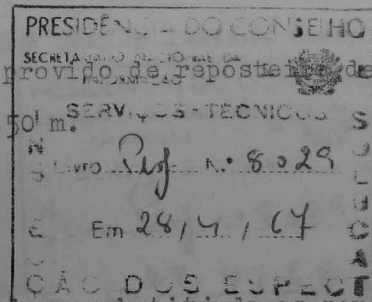 PRESIDÊNCIA DO CONSELHO
SECRETARIADO NACIONAL DA
INFORMAÇÃO
provido de reposteiro de
SERVIÇOS TÉCNICOS
50 m.
Livro N.º 8029
Em 28/4/67
ÇÃO DOS ESPECT